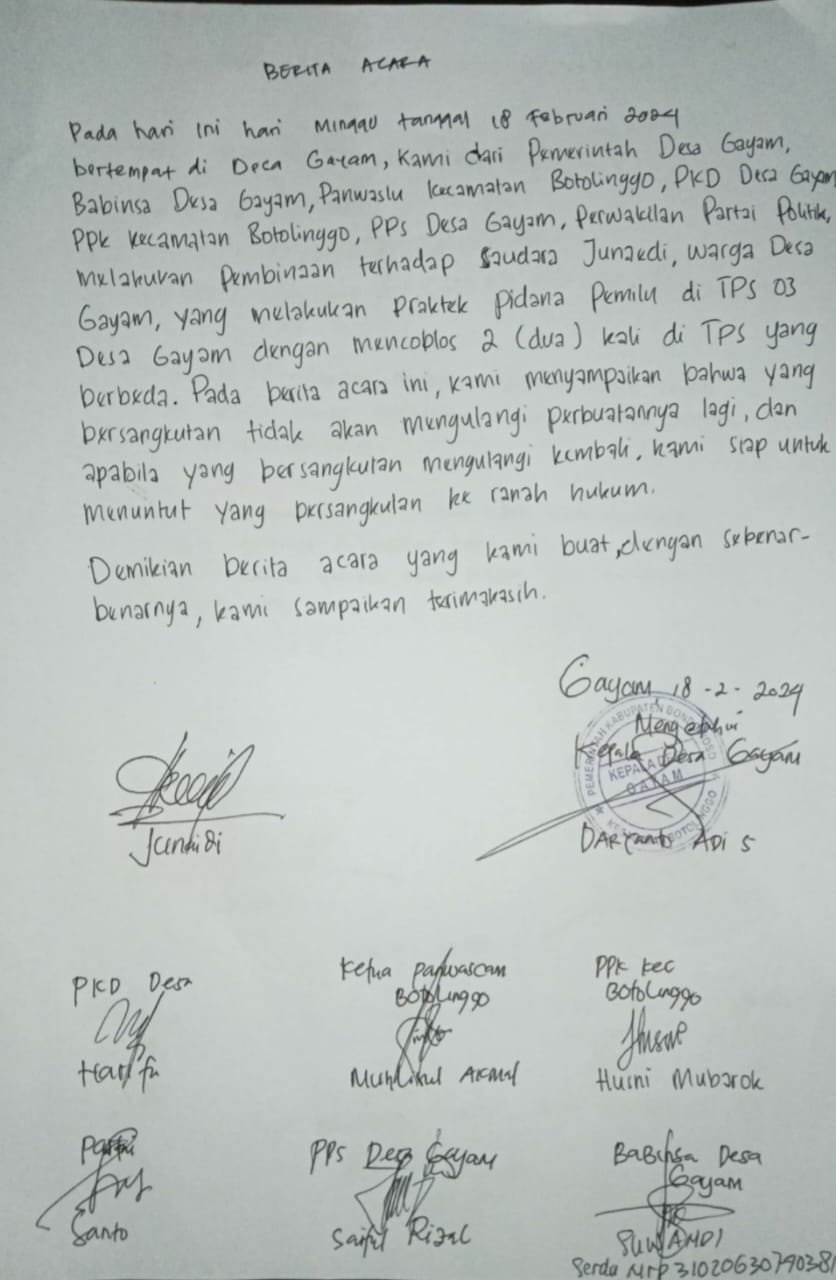 BERITA ACARA
Pada hari ini hari Minggu tanggal 18 Februari 2024
bertempat di Desa Gayam, Kami dari Pemerintah Desa Gayam,
Babinsa Desa Gayam, Panwaslu Kecamatan Botolinggo, PKD Desa Gayam
PPK Kecamatan Botolinggo, PPS Desa Gayam, Perwakilan Partai Politik,
melakukan Pembinaan terhadap Saudara Junaedi, warga Desa
Gayam, yang melakukan Praktek pidana Pemilu di TPS 03
Desa Gayam dengan mencoblos 2 (dua) kali di TPS yang
berbeda. Pada berita acara ini, kami menyampaikan bahwa yang
bersangkutan tidak akan mengulangi perbuatannya lagi, dan
apabila yang bersangkutan mengulangi kembali, kami siap untuk
menuntut yang bersangkutan ke ranah hukum.
Demikian berita acara yang kami buat, dengan sebenar-
benarnya, kami sampaikan terimakasih.
Gayam 18-2-2024
Mengetahui
Kepala Desa Gayam
PEMERINTAH KABUPATEN BONDOWOSO
KEPALA DESA
GAYAM
KECAMATAN BOTOLINGGO
DARyanto ADi S
Junaidi
PKD Desa
Ketua panwascam
Botolinggo
PPK Kec
Botolinggo
Muhlikul AKMAl
Husni Mubarok
Partai
Santo
PPS Desa Gayam
Saiful Rizal
BaBinsa Desa
Gayam
SUWANDI
Serda NRP 31020630790381